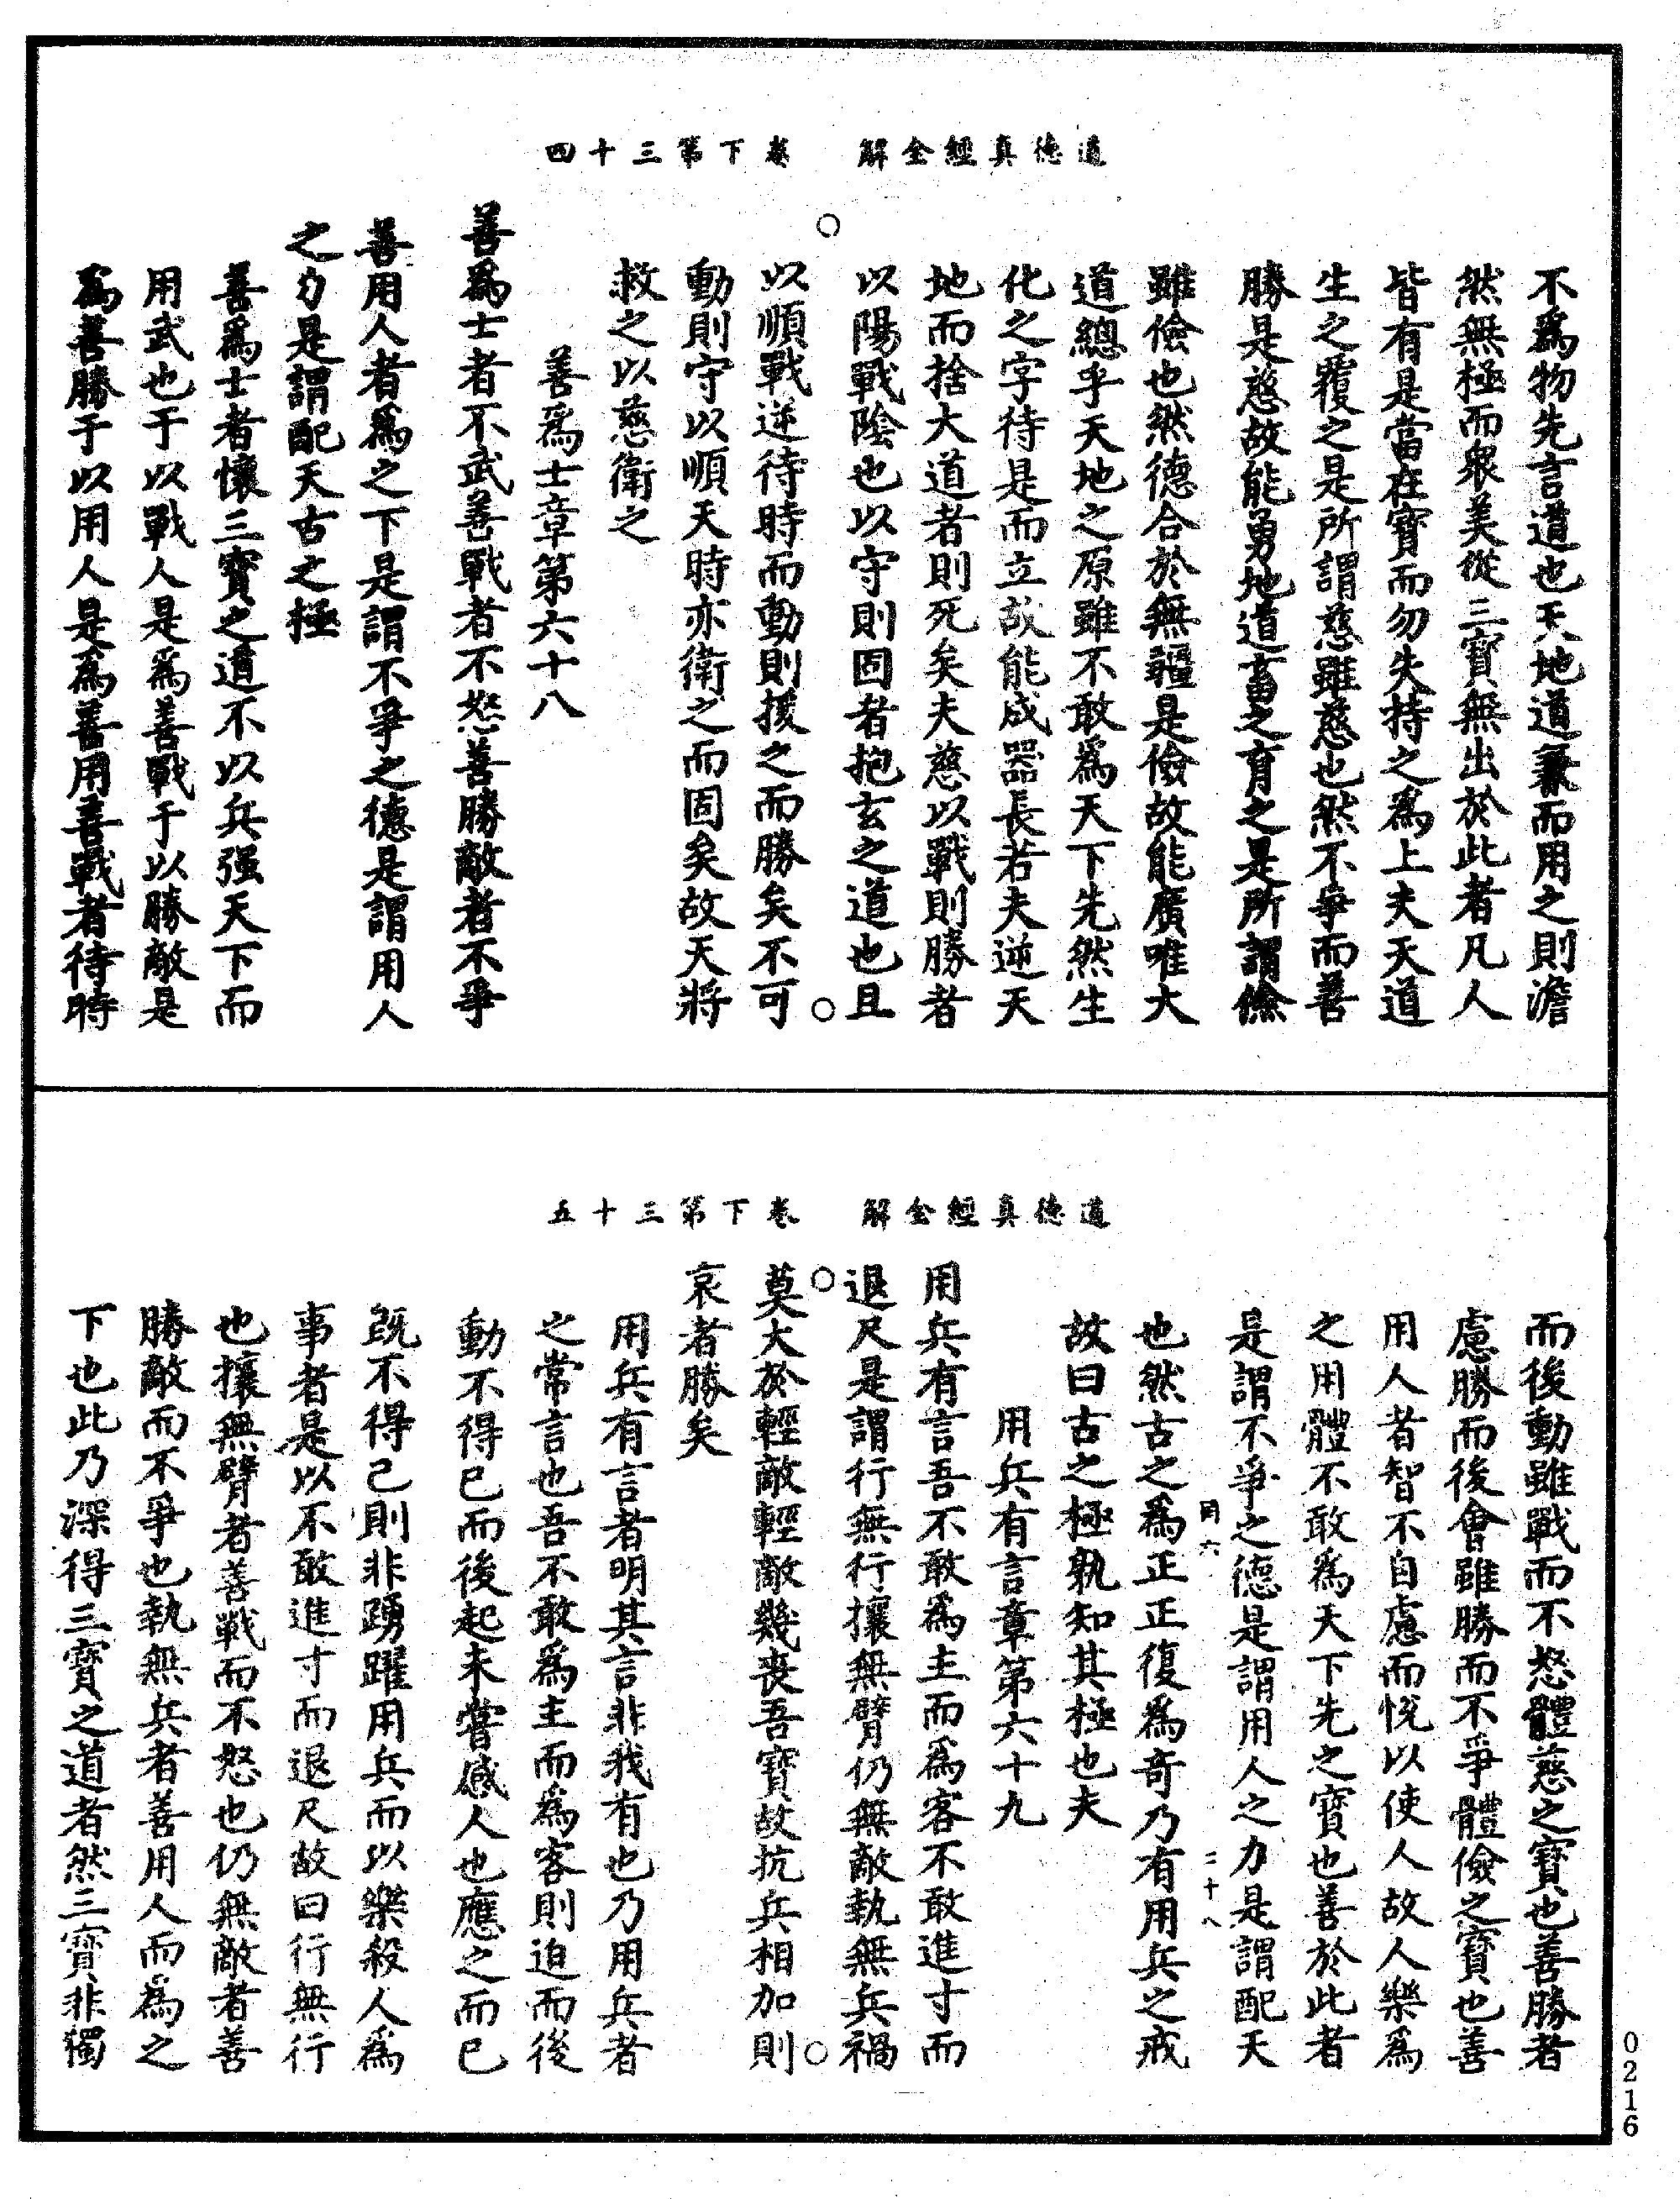 道德真經全解　卷下第三十四
不爲物先言道也天地道兼而用之則澹
然無極而衆美從三寶無出於此者凡人
皆有是當在寶而勿失持之爲上夫天道
生之覆之是所謂慈雖慈也然不爭而善
勝是慈故能勇地道畜之育之是所謂儉
雖儉也然德合於無疆是儉故能廣唯大
道總乎天地之原雖不敢爲天下先然生
化之字待是而立故能成器長若夫逆天
地而捨大道者則死矣夫慈以戰則勝者
以陽戰陰也以守則固者抱玄之道也且
以順戰逆待時而動則援之而勝矣不可
動則守以順天時亦衛之而固矣故天將
救之以慈衛之
善爲士章第六十八
善爲士者不武善戰者不怒善勝敵者不爭
善用人者爲之下是謂不爭之德是謂用人
之力是謂配天古之極
善爲士者懷三寶之道不以兵强天下而
用武也于以戰人是爲善戰于以勝敵是
爲善勝于以用人是爲善用善戰者待時
道德真經全解　卷下第三十五
而後動雖戰而不怒體慈之寶也善勝者
慮勝而後會雖勝而不爭體儉之寶也善
用人者智不自慮而悅以使人故人樂爲
之用體不敢爲天下先之寶也善於此者
是謂不爭之德是謂用人之力是謂配天
六　二十八
也然古之爲正正復爲奇乃有用兵之戒
故曰古之極孰知其極也夫
用兵有言章第六十九
用兵有言吾不敢爲主而爲客不敢進寸而
退尺是謂行無行攘無臂仍無敵執無兵禍
莫大於輕敵輕敵幾喪吾寶故抗兵相加則
哀者勝矣
用兵有言者明其言非我有也乃用兵者
之常言也吾不敢爲主而爲客則迫而後
動不得已而後起未嘗感人也應之而已
旣不得已則非踴躍用兵而以樂殺人爲
事者是以不敢進寸而退尺故曰行無行
也攘無臂者善戰而不怒也仍無敵者善
勝敵而不爭也執無兵者善用人而爲之
下也此乃深得三寶之道者然三寶非獨
0216